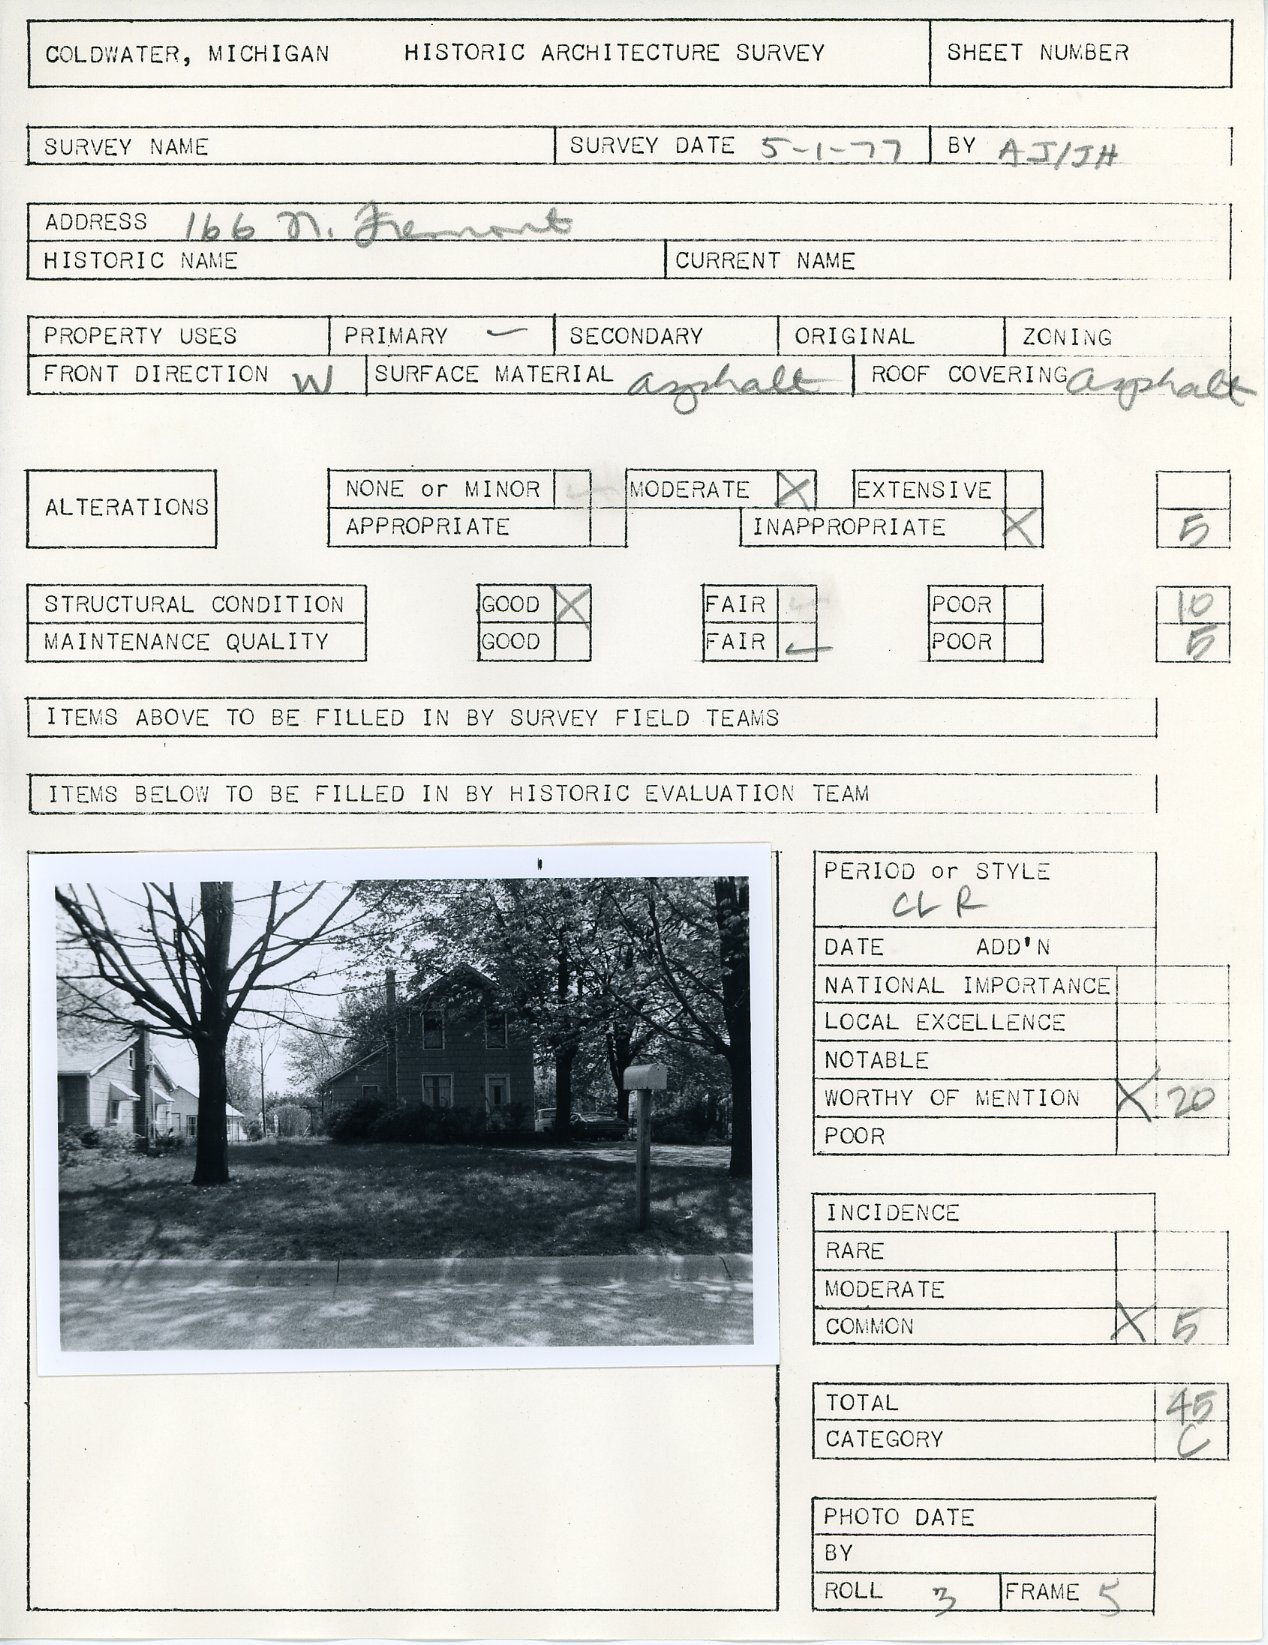 COLDWATER, MICHIGAN HISTORIC ARCHITECTURE SURVEY SHEET NUMBER
SURVEY NAME SURVEY DATE 5-1-77 BY AJ/JH
ADDRESS 166 N. Fremont
HISTORIC NAME CURRENT NAME
PROPERTY USES PRIMARY SECONDARY ORIGINAL ZONING
FRONT DIRECTION W SURFACE MATERIAL asphalt ROOF COVERING asphalt
ALTERATIONS NONE or MINOR MODERATE X EXTENSIVE
APPROPRIATE INAPPROPRIATE X 5
STRUCTURAL CONDITION GOOD X FAIR POOR 10
MAINTENANCE QUALITY GOOD FAIR ✓ POOR 5
ITEMS ABOVE TO BE FILLED IN BY SURVEY FIELD TEAMS
ITEMS BELOW TO BE FILLED IN BY HISTORIC EVALUATION TEAM
PERIOD or STYLE
CLR
DATE ADD'N
NATIONAL IMPORTANCE
LOCAL EXCELLENCE
NOTABLE
WORTHY OF MENTION X 20
POOR
INCIDENCE
RARE
MODERATE
COMMON X 5
TOTAL 45
CATEGORY C
PHOTO DATE
BY
ROLL 3 FRAME 5